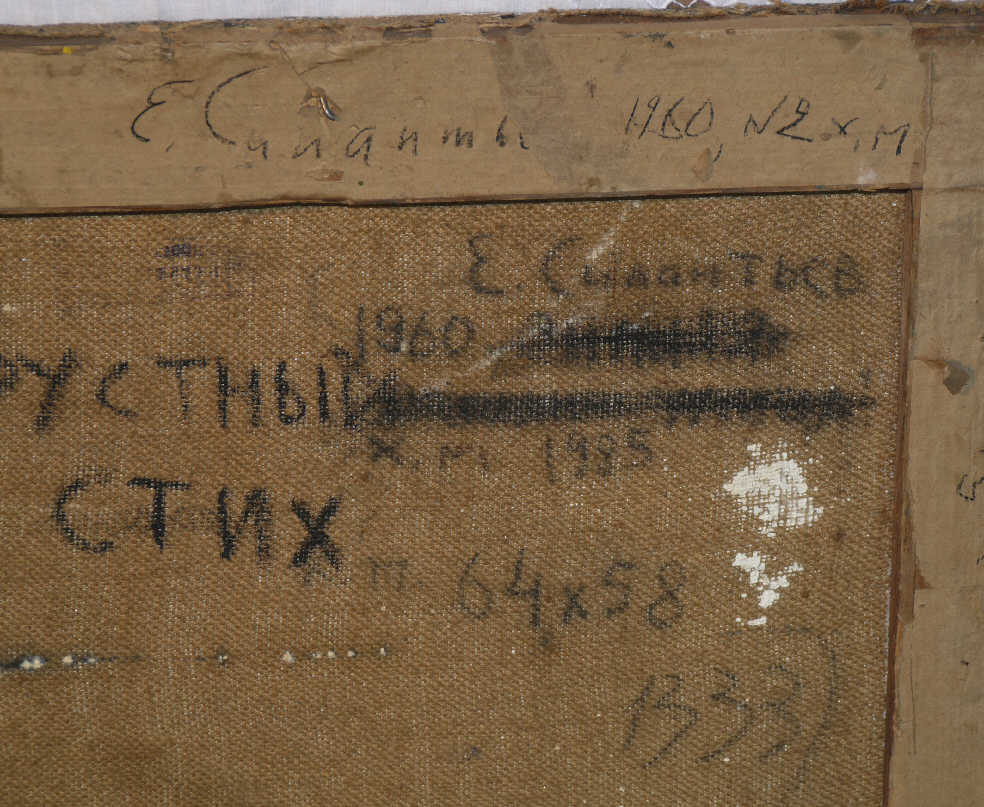 Е. Силанть 1960, №2 х, м
Е. Силантьев
1960
РУСТНЫЙ
х. м. 1985
СТИХ
т. 64x58
1333